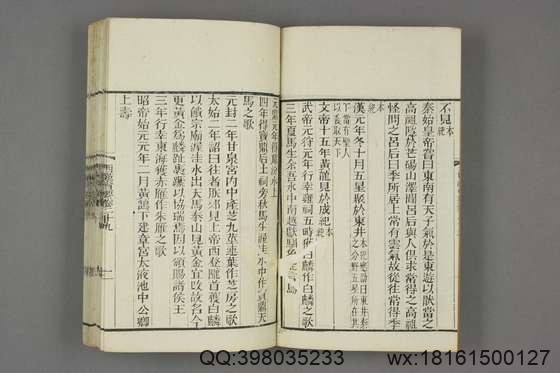 不見本紀
秦始皇帝嘗曰東南有天子氣於是東遊以猒當之
高祖隱於芒碭山澤間呂后與人俱求常得之高祖
怪問之呂后曰季所居上常有雲氣故從往常得季
本紀
漢元年冬十月五星聚於東井
下當有聖人以義取天下
文帝十五年黃龍見於成紀本紀
武帝元狩元年行幸雍祠五畤獲白麟作白麟之歌
三年夏馬生余吾水中南越獻馴象
元鼎元年得鼎汾水上
四年得寶鼎后土祠旁秋馬生渥洼水中作寶鼎天
馬之歌
元封二年甘泉宮內中產芝九莖連葉作芝房之歌
太始二年詔曰往者朕郊見上帝西登隴首獲白麟
以饋宗廟渥洼水出天馬泰山見黃金宜改故名今
更黃金為麟趾褭蹏以協瑞焉因以頒賜諸侯王
三年行幸東海獲赤雁作朱雁之歌
昭帝始元元年二月黃鵠下建章宮太液池中公卿
上壽
QQ:398035233
wx:18161500127